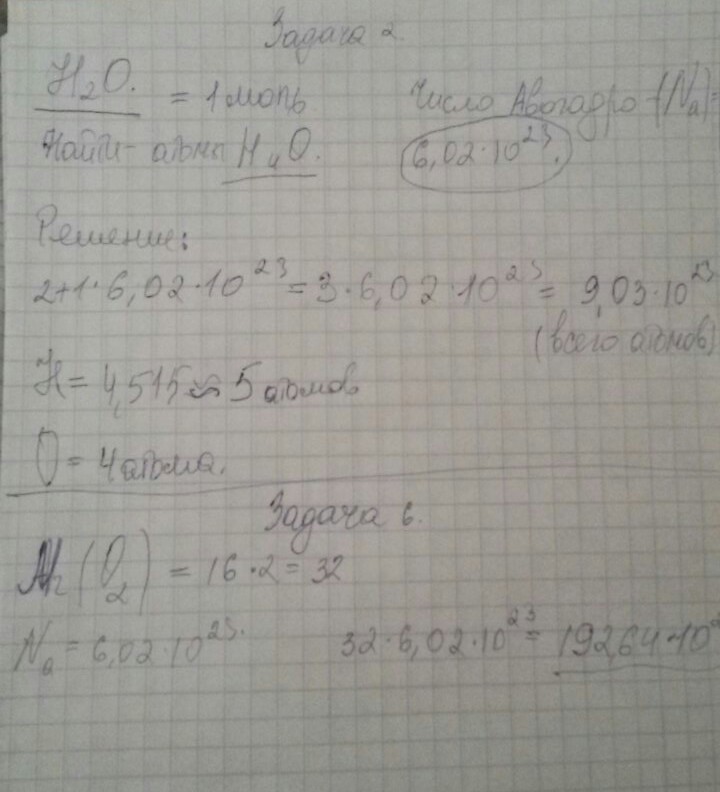 Задача 2.
H₂O. = 1 моль Число Авогадро (Nₐ) =
Найти - атомы H ч O. 6,02·10²³.
Решение:
2+1·6,02·10²³ = 3·6,02·10²³ = 9,03·10²³
(всего атомов)
H = 4,515 ≈ 5 атомов
O = 4 атома.
Задача 6.
(O₂) = 16·2 = 32
Nₐ = 6,02·10²³. 32·6,02·10²³ = 192,64·10